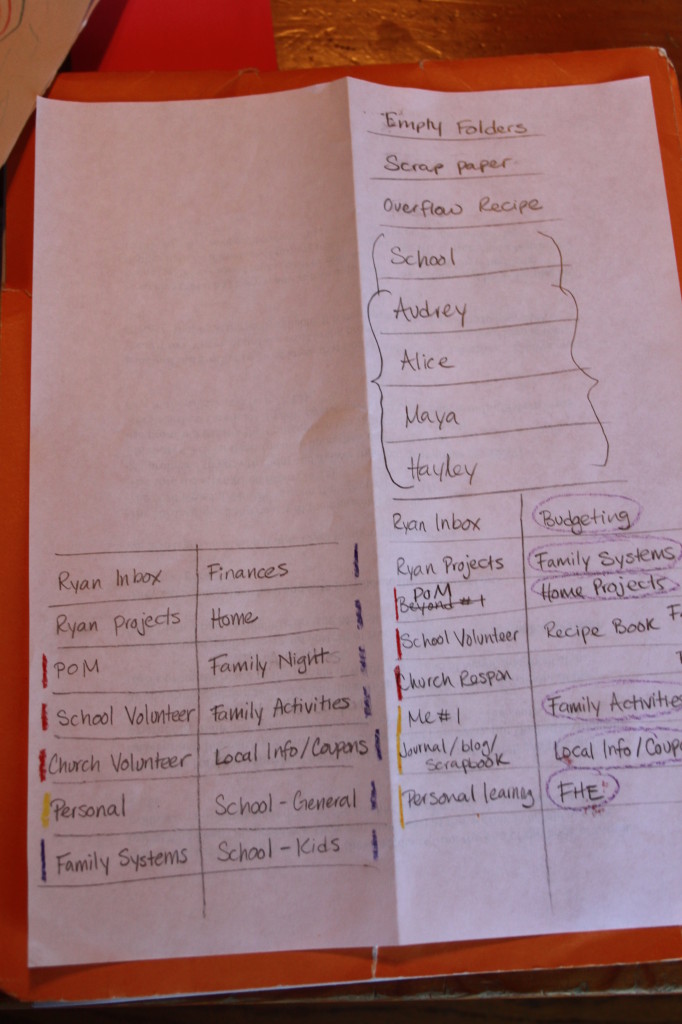 Empty Folders
Scrap paper
Overflow Recipe
School
Audrey
Alice
Maya
Hayley
Ryan Inbox Budgeting
Ryan Projects Family Systems
POM
Beyond #1 Home Projects
School Volunteer Recipe Book F
Church Respon
Me #1 Family Activities
Journal/blog/
scrapbook Local Info/Coup
Personal learning FHE
Ryan Inbox Finances
Ryan Projects Home
POM Family Night
School Volunteer Family Activities
Church Volunteer Local Info/Coupons
Personal School - General
Family Systems School - Kids